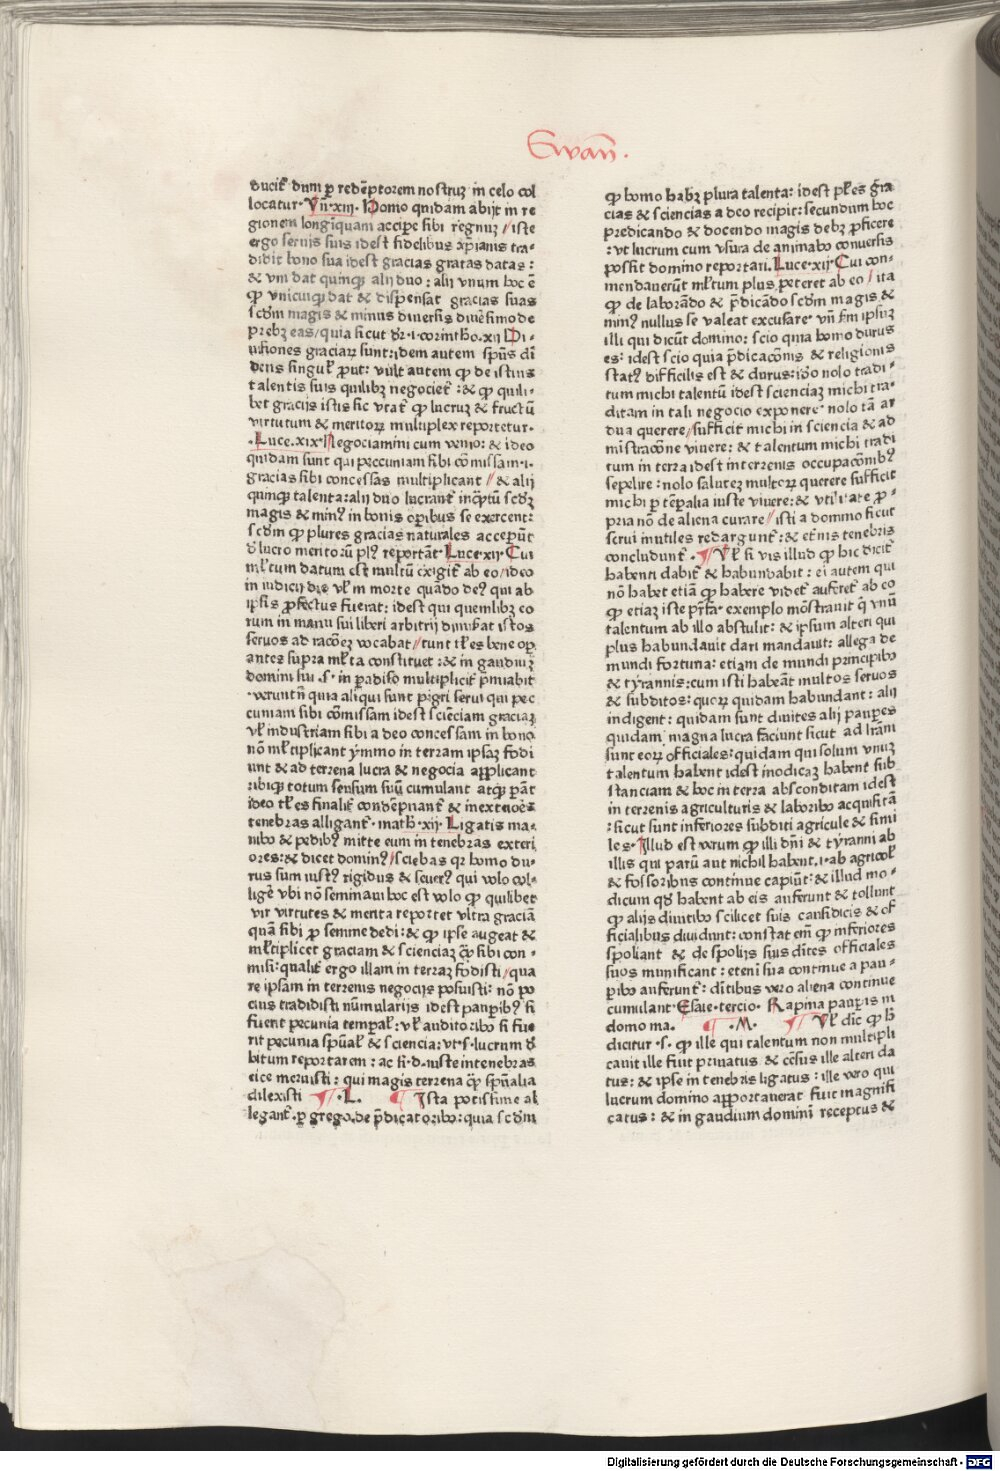 Swan̄.
ducit̃ dum p̲ redẽptorem nostruꝫ in celo col
locatur· Vñ·xiij· Homo quidam abijt in re
gionem longīquam accipe sibi regnuꝫ / iste
ergo seruis suis idest fidelibus xp̄ianis tra⸗
didit bono sua idest gracias gratas datas :
& vni dat quinqꝫ alij duo : alij vnum hoc ē
ꝙ vnicuiqꝫ dat & dispensat gracias suas
scd̄m magis & minus diuersis diuēsimode
prebꝫ eas/quia sicut dr̄·i·corintho·xij Di⸗
uisiones graciaꝝ sunt:idem autem spūs di
dens singul̃ put: vult autem ꝙ de istius
talentis suis quilibꝫ negociet̃ :& ꝙ quili⸗
bet gracijs istis sic vtat̃ ꝙ lucruꝫ & fructū
virtutum & meritoꝝ multiplex reportetur·
·Luce·xix·Negociamini cum venio: & ideo
quidam sunt qui peccuniam sibi cōmissam·i·
gracias sibi concessas multiplicant / & alij
quinqꝫ talenta:alij duo lucrant̃ inq̄ptū scd̄ꝫ
magis & minꝰ in bonis oꝑibus se exercent:
scd̄m ꝙ plures gracias naturales accepūt
d̄ lucro meritoꝝ plꝰ reportāt·Luce·xij·Cui
ml̃tum datum est multū exigit̃ ab eo/ideo
in iudicij die vl̃ in morte quādo deꝰ qui ab
ipsis ꝓfectus fuerat: idest qui quemlibꝫ eo
rum in manu sui liberi arbitrij dimisat istos
seruos ad racōeꝫ vocabat / tunt tl̃es bene oꝑ
antes supra ml̃ta constituet :& in gaudiuꝫ
domini sui ·s· in padiso multiplicit̃ p̄miabit
·veruntñ quia aliqui sunt pigri serui qui pec
cuniam sibi cōmissam idest sciēciam graciaꝫ
vl̃ industriam sibi a deo concessam in bono
nō ml̃tiplicant ymmo in terram ipsaꝫ fodi
unt & ad terrena lucra & negocia applicant
ibiqꝫ totum sensum suū cumulant atqꝫ pāt
ideo tl̃es finalit̃ condēpnant̃ & in exterioēs
tenebras alligant̃ ·math·xij· Ligatis ma⸗
nibo & pedibꝰ mitte eum in tenebras exteri
ores:& dicet dominꝰ /sciebas qꝛ homo du⸗
rus sum iustꝰ rigidus & seuerꝰ qui volo col⸗
ligē vbi nō seminaui hoc est volo ꝙ quilibet
vir virtutes & merita reportet vltra graciā
quā sibi p̲ semine dedi:& ꝙ ipse augeat &
ml̃tiplicet graciam & scienciaꝫ q̄ꝫ sibi con⸗
misi:qualit̃ ergo illam in terraꝫ fodisti /qua
re ipsam in terrenis negocijs posuisti: nō po
cius tradidisti nūmularijs idest pauꝑibꝰ si
fuerit pecunia tempal̃: vl̃ auditoribo si fue
rit pecunia spūal̃ & sciencia: vt·s·lucrum d̄
bitum reportarem : ac si·d·iuste in tenebras
eice meruisti : qui magis terrena q̄ꝫ spūalia
dilexisti ¶·L. ¶ Ista potissime al
legant̃·p̲ grego.de p̄dicatoribo:quia scd̄m
ꝙ homo habꝫ plura talenta: idest pl̃es gr̄a
cias & sciencias a deo recipit: secundum hoc
predicando & docendo magis debꝫ pficere
: vt lucrum cum vsura de animabo conuersis
possit domino reportari.Luce·xij·Cui con⸗
mendauerūt ml̃tum plus peteret ab eo / ita
ꝙ de laborādo & p̄dicādo scd̄m magis &
minꝰ nullus se valeat excusare· vñ s̄m ipsuꝫ
illi qui dicūt domino: scio quia homo durus
es: idest scio quia p̄dicacōnis & religionis
statꝰ difficilis est & durus: iō̄ nolo tradi⸗
tum michi talentū idest scienciaꝫ michi tra⸗
ditam in tali negocio exponere· nolo tā ar
dua querere/sufficit michi in sciencia & ad
mistracōne viuere: & talentum michi tradi
tum in terra idest in terrenis occupacōnibꝰ
sepelire: nolo saluteꝫ multoꝝ querere sufficit
michi p̲ tēpalia iuste viuere: & vtilitate ꝓ⸗
pria nō de aliena curare / isti a domino sicut
serui inutiles redargunt̃ :& et̃nis tenebris
concludunt̃ . ¶ Vl̃ si vis illud ꝙ hic dicit̃
habenti dabit̃ & habundabit : ei autem qui
nō habet etiā ꝙ habere videt̃ auferet̃ ab eo
ꝙ etiaꝫ iste prf̃a· exemplo mōstrauit q̄ vnū
talentum ab illo abstulit: & ipsum alteri qui
plus habundauit dari mandauit: allega de
mundi fortuna: etiam de mundi principibo
& tyrannis :cum isti habeāt multos seruos
& subditos: quoꝝ quidam habundant: alij
indigent: quidam sunt diuites alij pauꝑes
quidam magna lucra faciunt sicut ad lr̄am
sunt eoꝝ officiales: quidam qui solum vnuꝫ
talentum habent idest modicaꝫ habent sub
stanciam & hoc in terra absconditam idest
in terrenis agriculturis & laboribo acquisitā
:sicut sunt inferiores subditi agricule & simi
les·Illud est verum ꝙ illi dn̄i & tyranni ab
illis qui parū aut nichil habent.i·ab agricol̃
& fossoribns continue capiūt: & illud mo⸗
dicum qd̄ habent ab eis auferunt & tollunt
ꝙ alijs diuitibo scilicet suis causidicis & of
ficialibus diuidunt: constat em̄ ꝙ inferiores
spoliant & de spolijs suis dītes officiales
suos munificant : eteni sua continue a pau⸗
ꝑibo auferunt̃: dītibus vero aliena continue
cumulant Esaie·tercio· Rapina pauꝑis in
domo ma. ¶·M· ¶ Vl̃ dic̄ ꝙ h̄
dicitur ·s· ꝙ ille qui talentum non multipli
cauit ille fuit priuatus & cēsus ille alteri da
tus: & ipse in tenebris ligatus : ille vero qui
lucrum domino apportauerat fuit magnifi
catus : & in gaudium domini receptus &
Digitalisierung gefördert durch die Deutsche Forschungsgemeinschaft - DFG